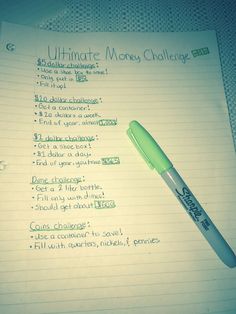 Ultimate Money Challenge
$5 dollar challenge!
• Use a shoe box to save!
• Only put in $5
• Fill it up!
$20 dollar challenge!
• Get a container!
• $20 dollars a week
• End of year, almost
$1 dollar challenge!
• Get a shoe box!
• $1 dollar a day
• End of year, you have
Dime challenge!
• Get a 2 liter bottle.
• Fill only with dimes!
• Should get about
Coins challenge!
• Use a container to save!
• Fill with quarters, nickels, & pennies
Sharpie